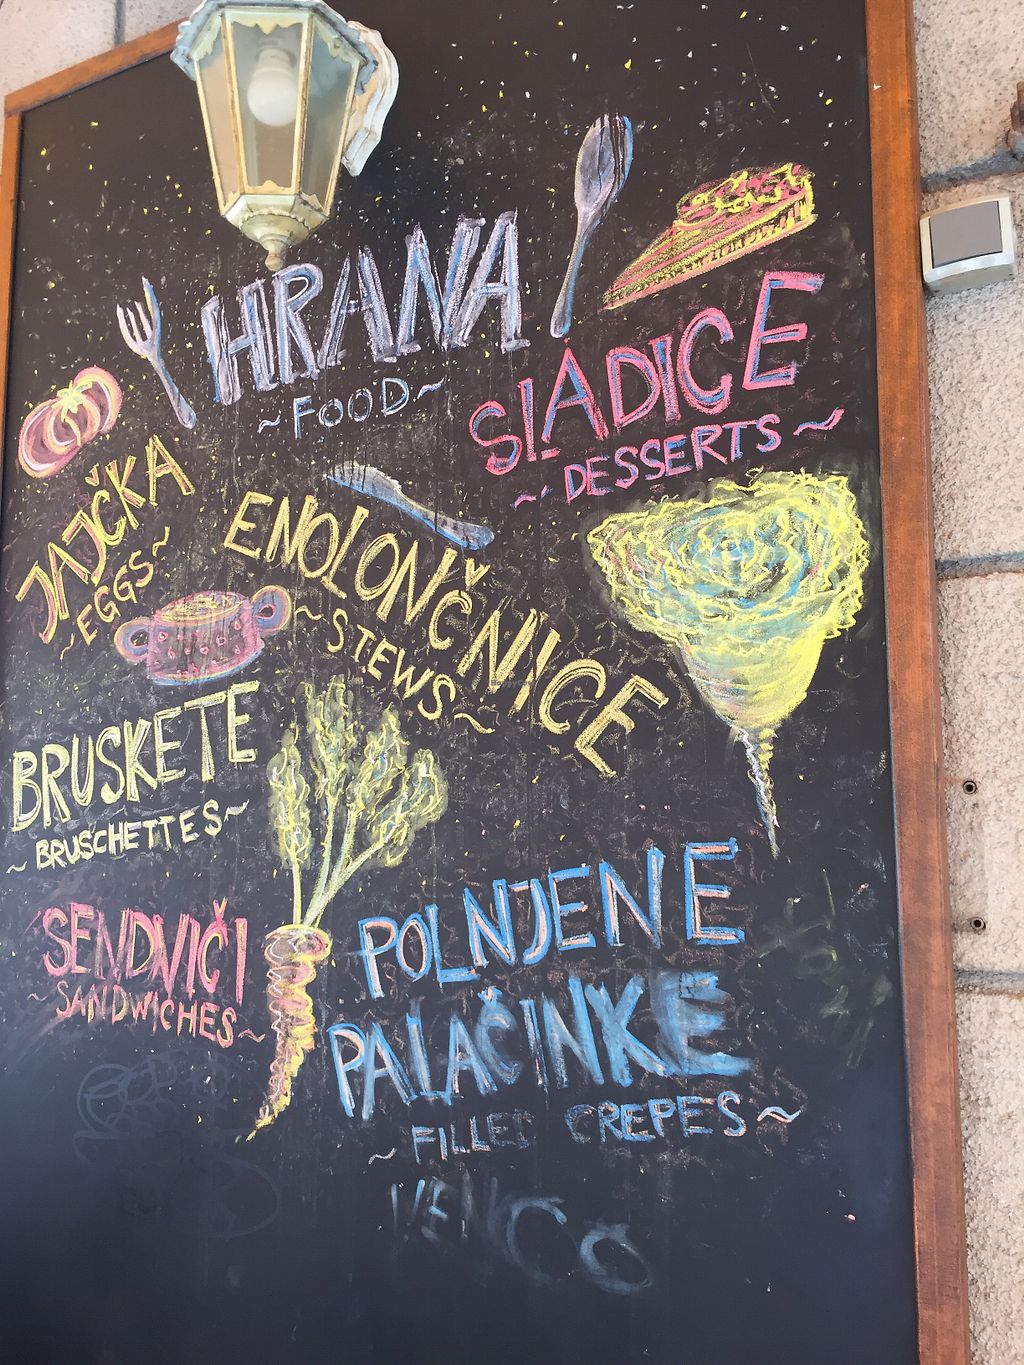 HRANA
~FOOD~
SLADICE
~DESSERTS~
JAJČKA
~EGGS~
ENOLONČNICE
~STEWS~
BRUSKETE
~BRUSCHETTES~
SENDVIČI
~SANDWICHES~
POLNJENE
PALAČINKE
~FILLED CREPES~